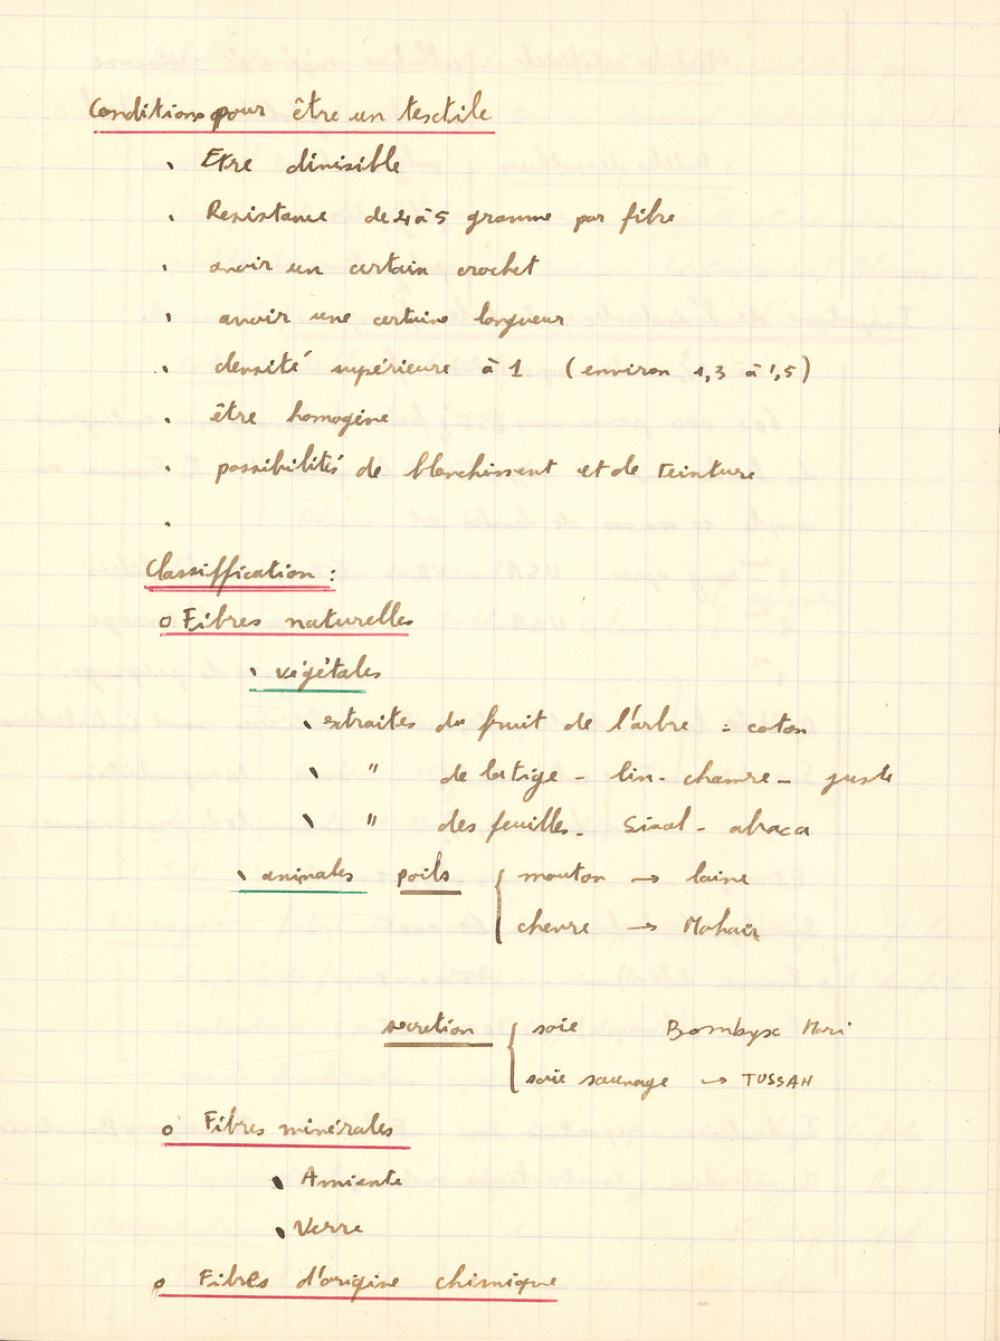 Conditions pour être un textile
Etre divisible
Resistance de 4 à 5 gramme par fibre
avoir un certain crochet
avoir une certaine longueur
densité supérieure à 1 (environ 1,3 à 1,5)
être homogène
possibilités de blanchissent et de teinture
Classiffication :
o Fibres naturelles
végétales
extraites du fruit de l'arbre = coton
" de la tige - lin - chanvre - juste
" des feuilles - Sisal - abaca
animales poils { mouton → laine
chevre → Mohair
secretion { soie Bombyx Mori
soie sauvage → TUSSAH
o Fibres minérales
Amiante
Verre
o Fibres d'origine chimique